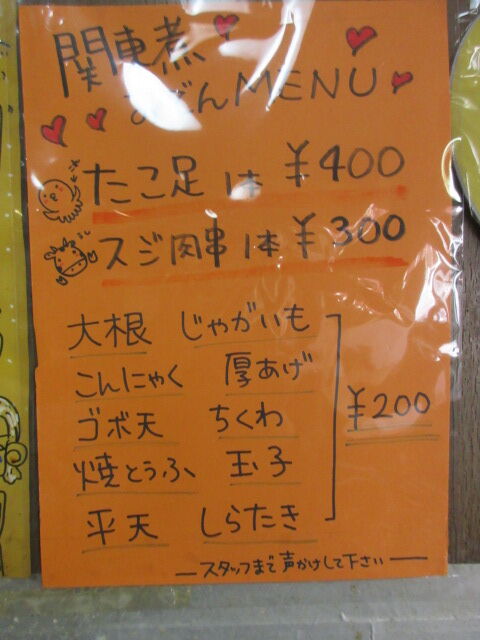 関東煮
おでんMENU
たこ足 1本 ¥400
スジ肉串 1本 ¥300
大根 じゃがいも
こんにゃく 厚あげ
ゴボ天 ちくわ
¥200
焼とうふ 玉子
平天 しらたき
―スタッフまで声かけして下さい―